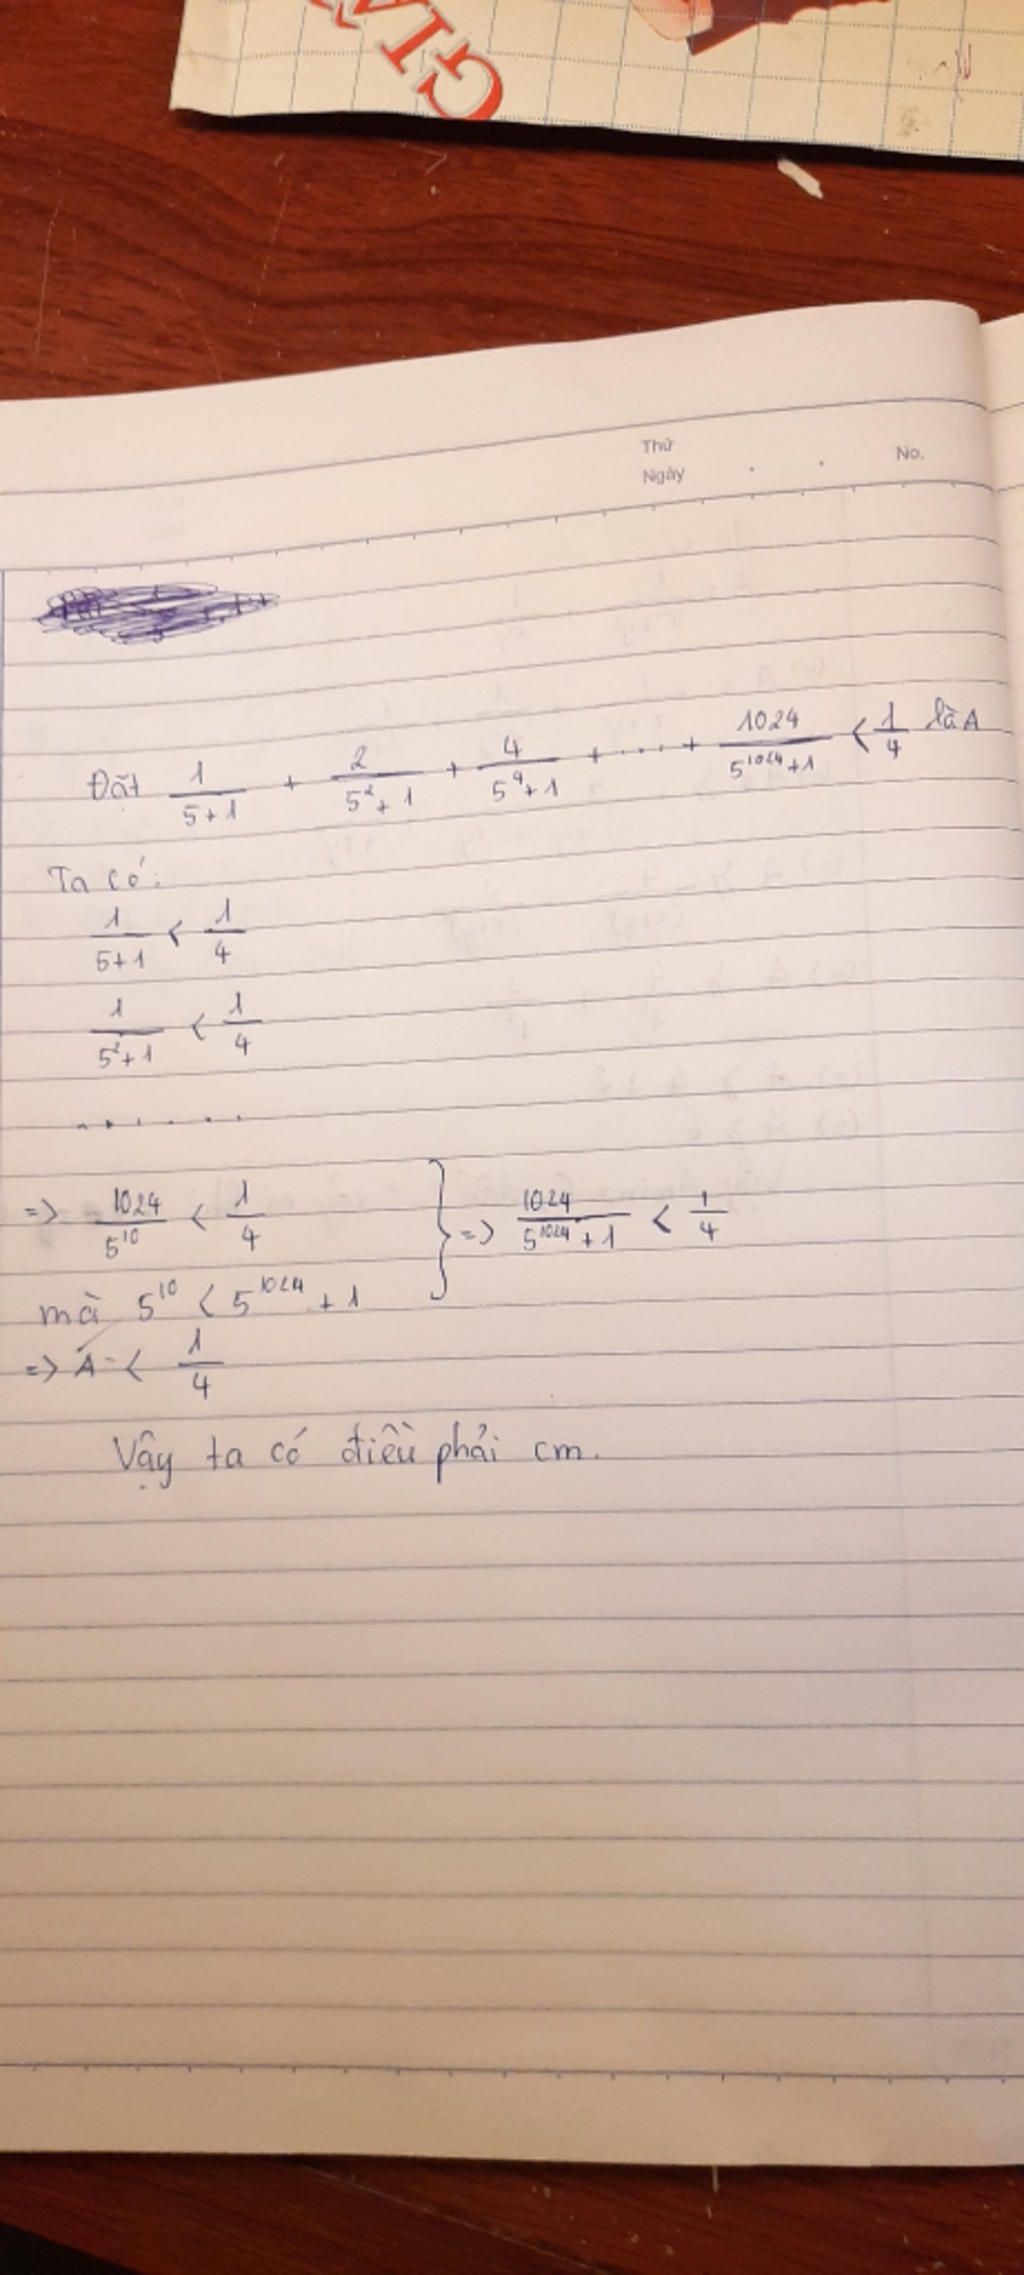 GIẢ
Thứ
Ngày . . No.
Đặt 1/(5+1) + 2/(5²+1) + 4/(5⁴+1) + .... + 1024/(5¹⁰²⁴+1) < 1/4 là A
Ta có:
1/(5+1) < 1/4
1/(5²+1) < 1/4
. . . . . .
=> 1024/5¹⁰ < 1/4 } => 1024/(5¹⁰²⁴+1) < 1/4
mà 5¹⁰ < 5¹⁰²⁴ + 1
=> A < 1/4
Vậy ta có điều phải cm.